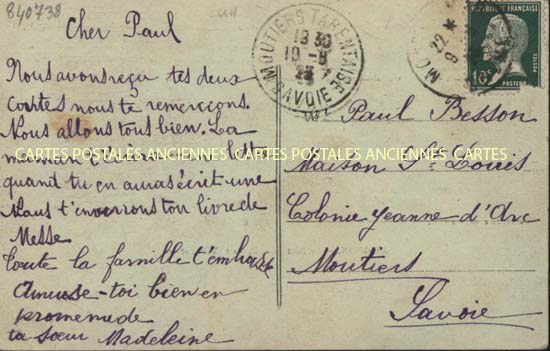 840738
Cher Paul
Nous avons reçu tes deux
cartes nous te remerçons.
Nous allons tous bien. La
CARTES POSTALES ANCIENNES CARTES POSTALES ANCIENNES CARTES
quand tu en auras écrit une
Nous t'enverrons ton livre de
Messe
Toute la famille t'embrasse
Amuse-toi bien en
promenade
ta sœur Madeleine
MOUTIERS TARENTAISE
1930
10-8
23
SAVOIE
RÉPUBLIQUE FRANÇAISE
10c
POSTES
PASTEUR
Paul Besson
Maison St Louis
Colonie Jeanne d'Arc
Moutiers
Savoie